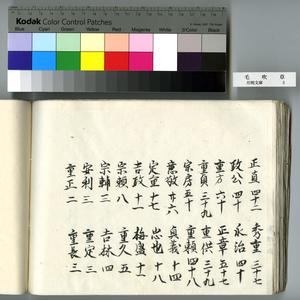 Kodak Color Control Patches
Blue Cyan Green Yellow Red Magenta White 3/Color Black
毛吹草
正真 四十二
政公 四十
重方 六十
重貞 三十九
宗房 五十
意敬 廿六
定重 十七
吉政 十一
宗頼 八
宗輔 三
安利 三
重正 二
秀重 三十七
永治 四十
正章 五十七
重供 三十九
重頼 四十八
良義 十四
忠也 十六
梅盛 十一
重久 五
吉林 四
重定 三
重長 三